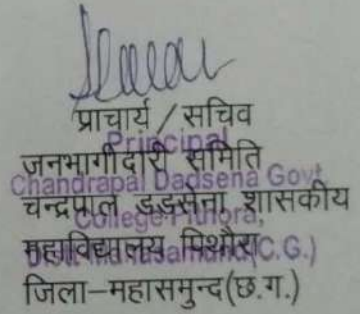 प्राचार्य / सचिव
Principal
जनभागीदारी समिति
Chandrapal Dadsena Govt.
चन्द्रपाल डड़सेना शासकीय
College Pithora,
महाविद्यालय पिथौरा
(C.G.)
जिला-महासमुन्द(छ.ग.)